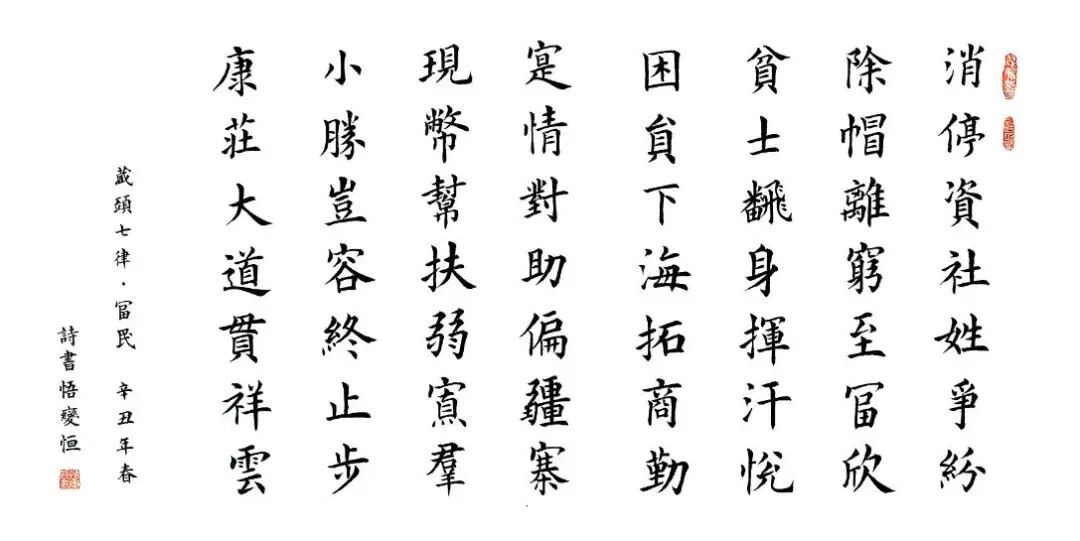 消停資社姓爭紛
除帽離窮至冨欣
貧士飜身揮汗悅
困貟下海拓商勤
寔情對助偏疆寨
現幣幫扶弱寡羣
小勝豈容終止步
康莊大道貫祥雲
藏頭七律·冨民 辛丑年春
詩書悟變恒